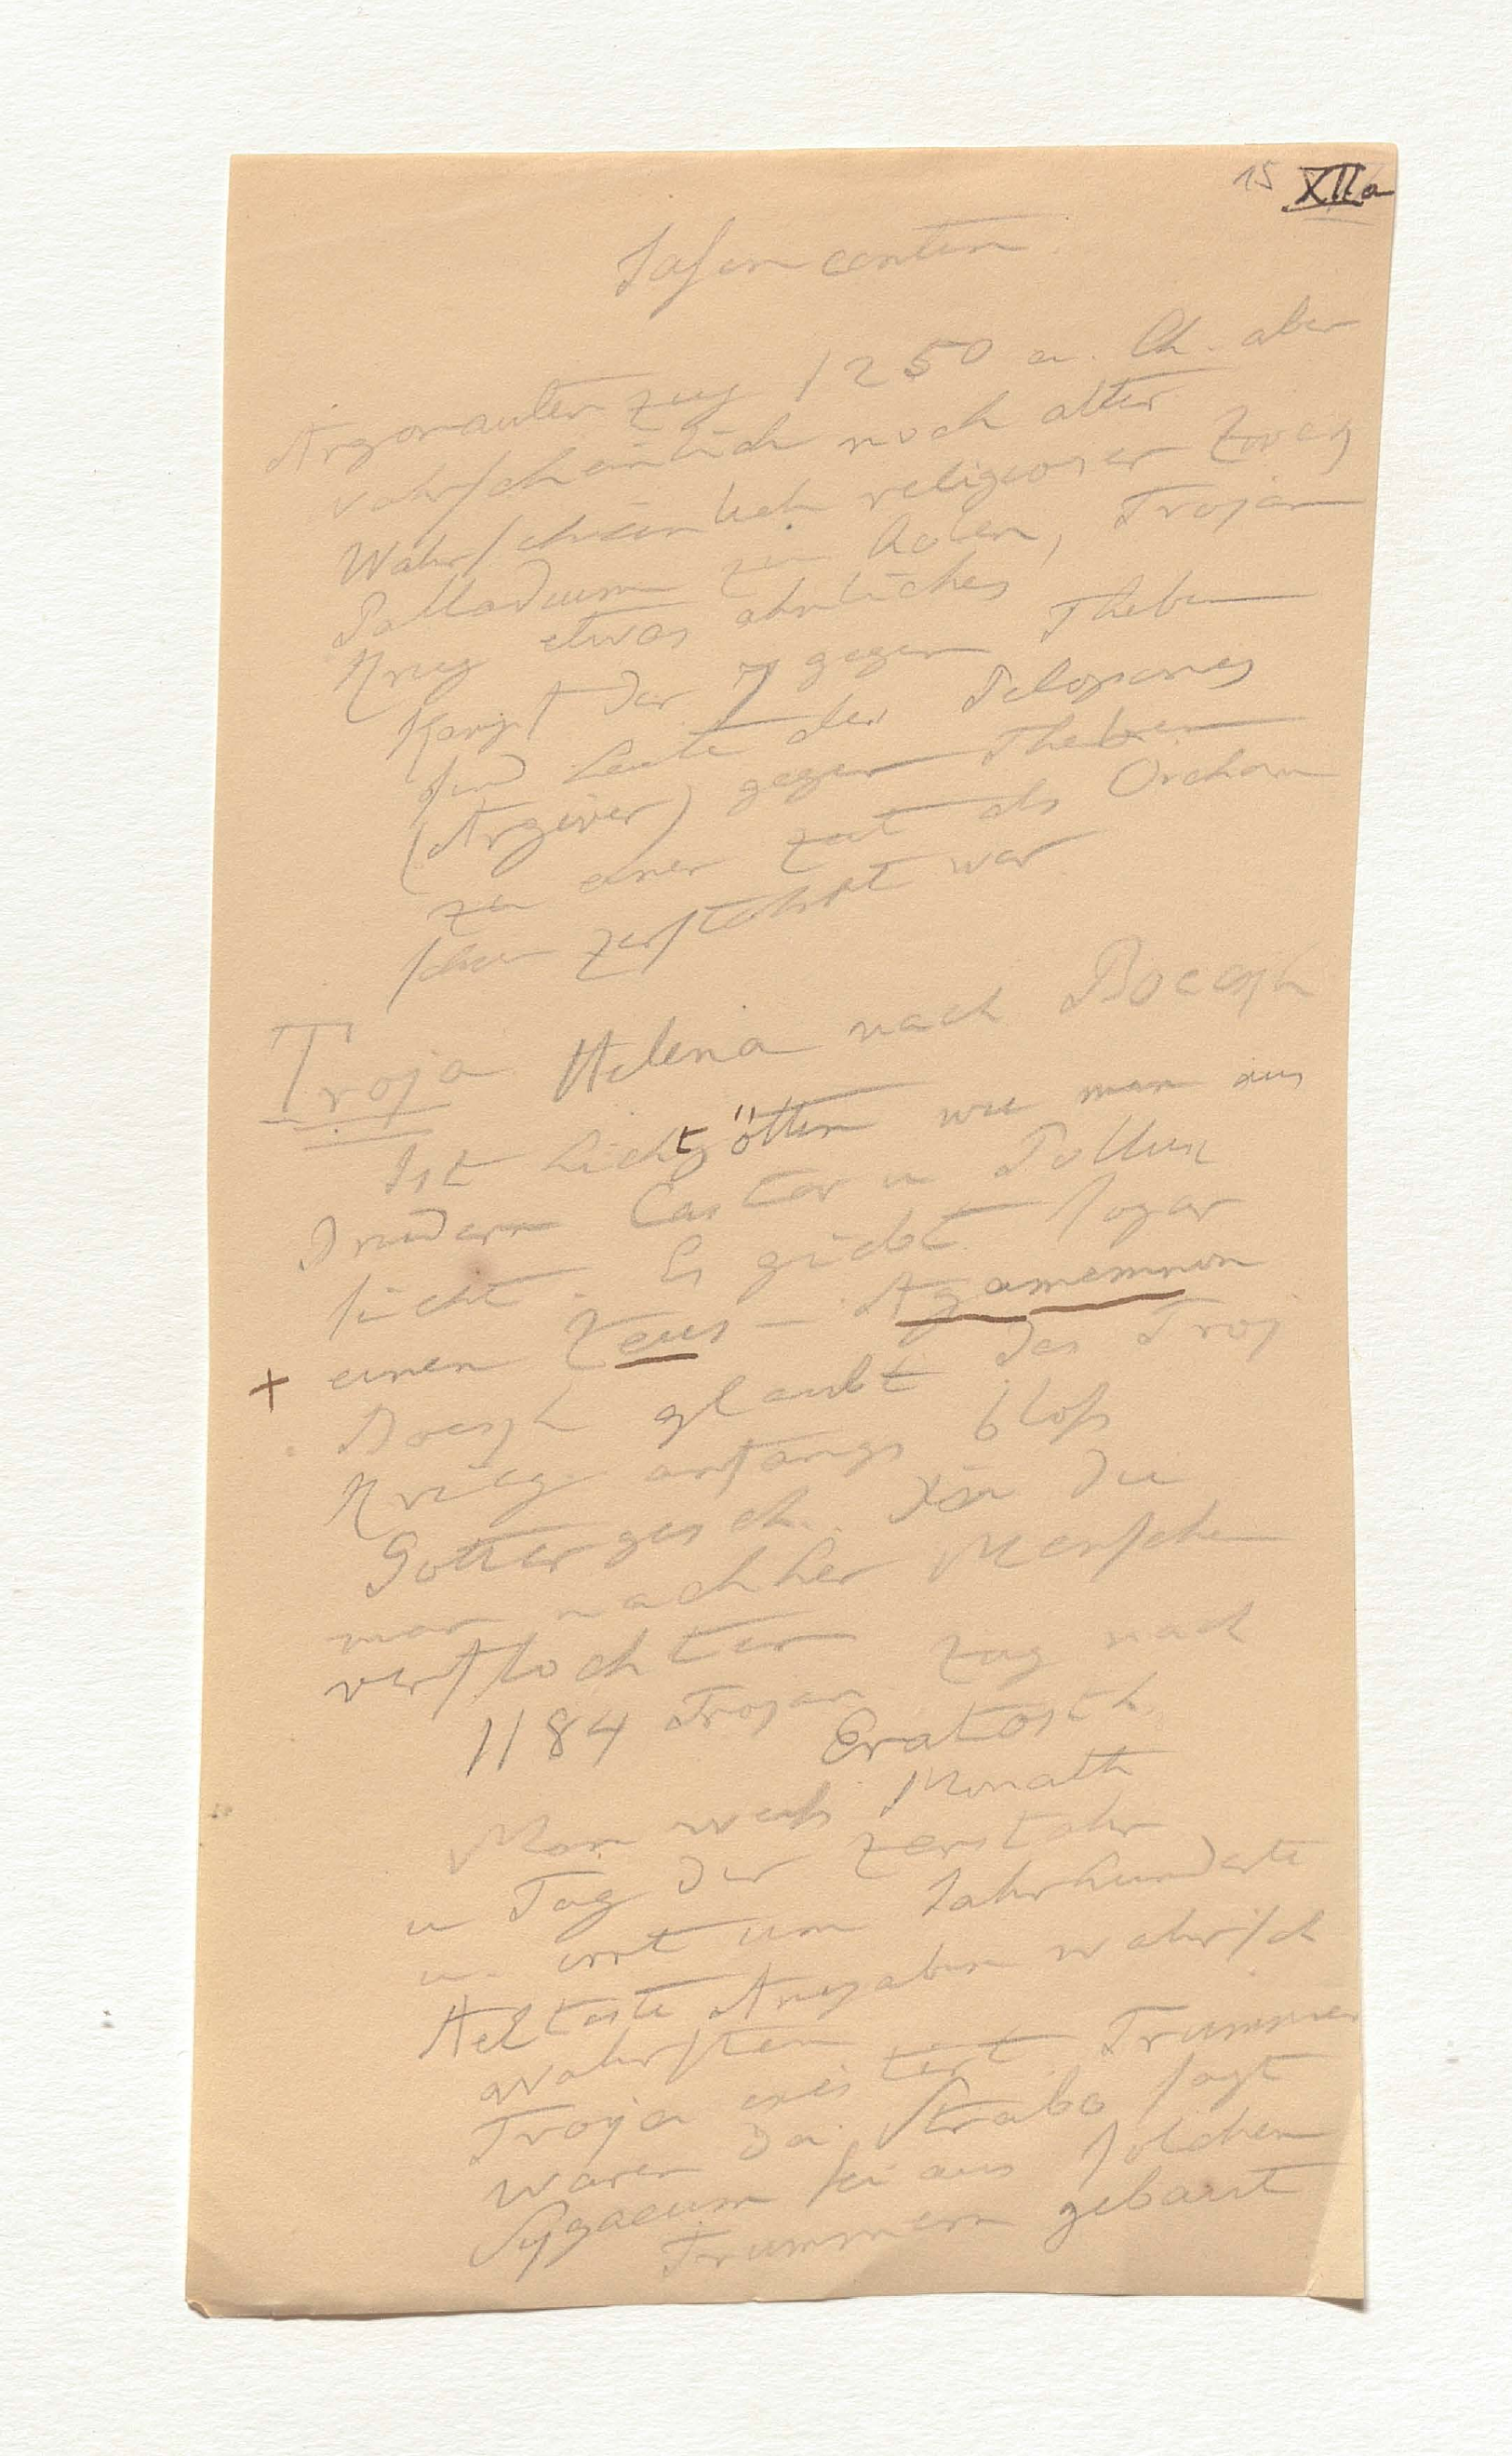 15 XIIa
Jason contin.
Argonauten zug 1250 a. Ch. aber
wahrscheinlich noch alter
Wahrscheinlich religioser Zweg
Palladium zu holen, Trojan
Krieg etwas ahnliches
Kampf der 7 gegen Theben
sind Leute des Pelopones
(Argeier) gegen Theben
zu einer zeit als Orchom
schon zerstohrt war
Troja Helena nach Boeckh
Ist Lichtgöttin wie man aus
Brudern Castor u Pollux
sicht. Es giebt sogar
+ einen Zeus - Agamemnon
Boeckh glaubt das Troj
Krieg anfangs bloß
Gotter gesch. in die
man nachher Menschen
verflochten
1184 Trojan zug nach
Eratosth.
Man weiß Monath
u Tag der zerstohr
u. irrt um Jahrhunderte
Aelteste Angaben wahrsch
wahrsten
Troja existirt Trummer
waren da. Strabo sagt
Sygaeum sei aus solchen
Trummern gebaut